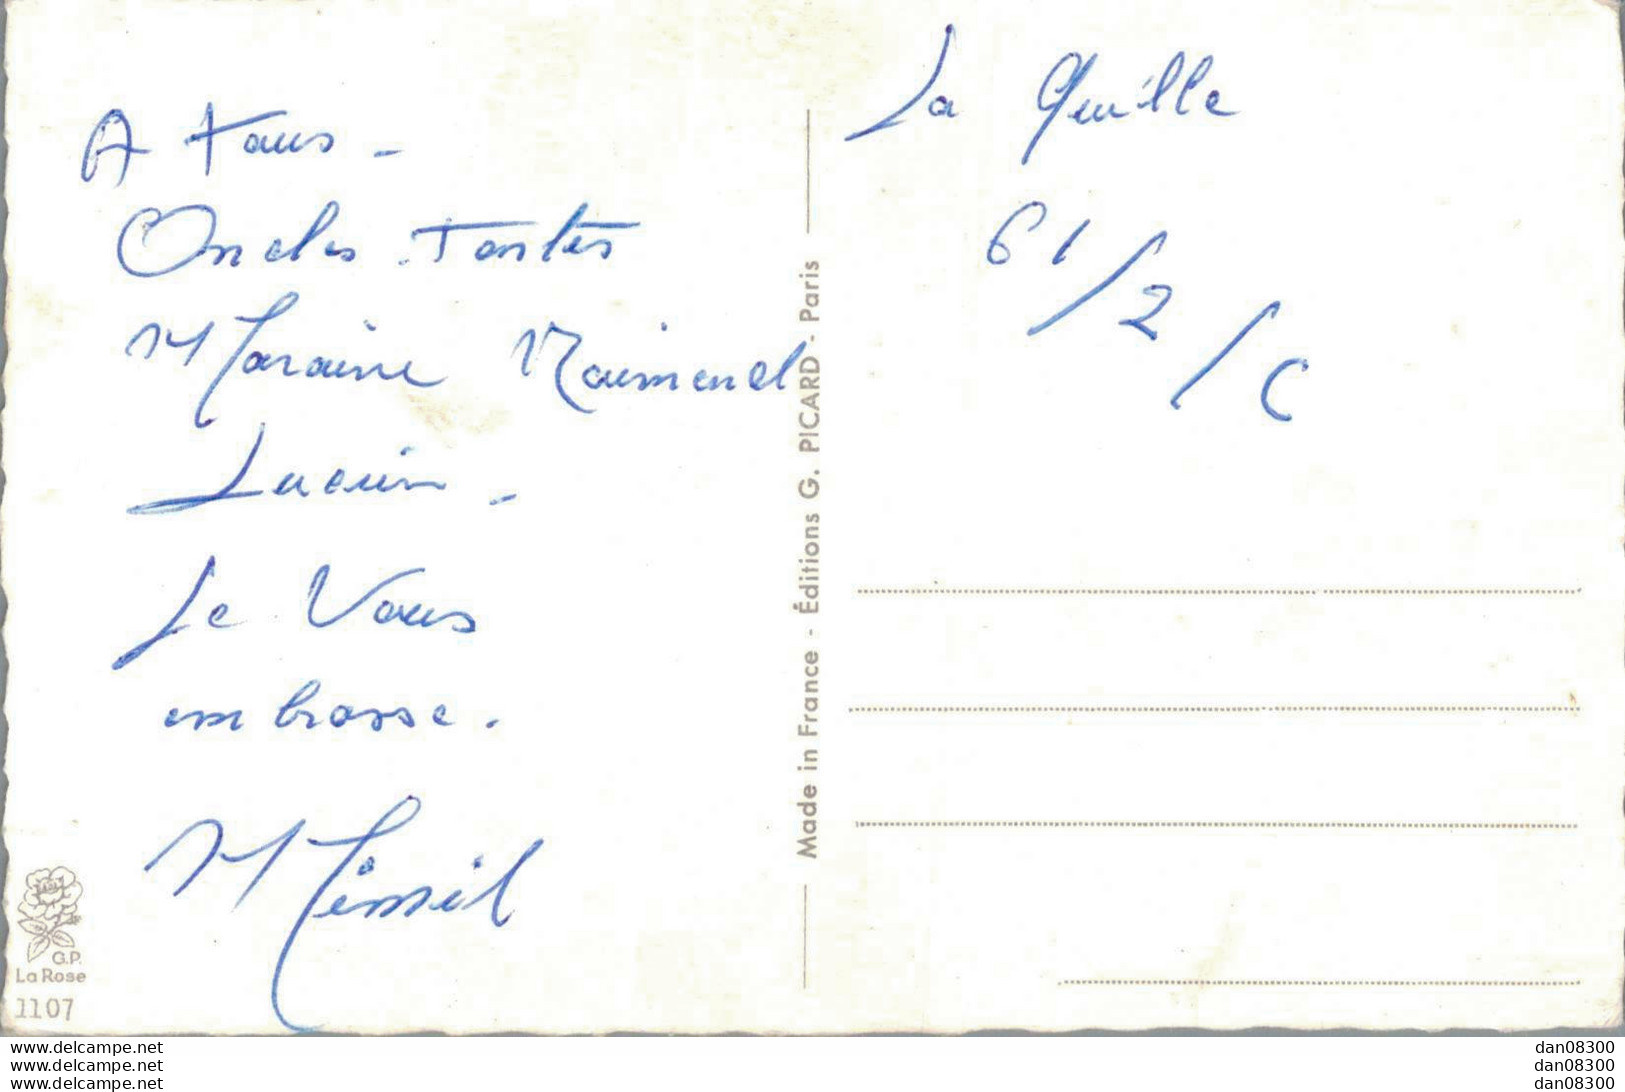 A tous -
Oncles Tantes
Maraine Raimond
Lucien -
Je Vous
embrasse.
La Quille
61/2/C
Made in France - Éditions G. PICARD - Paris
G.P.
La Rose
1107
www.delcampe.net
www.delcampe.net
www.delcampe.net
dan08300
dan08300
dan08300